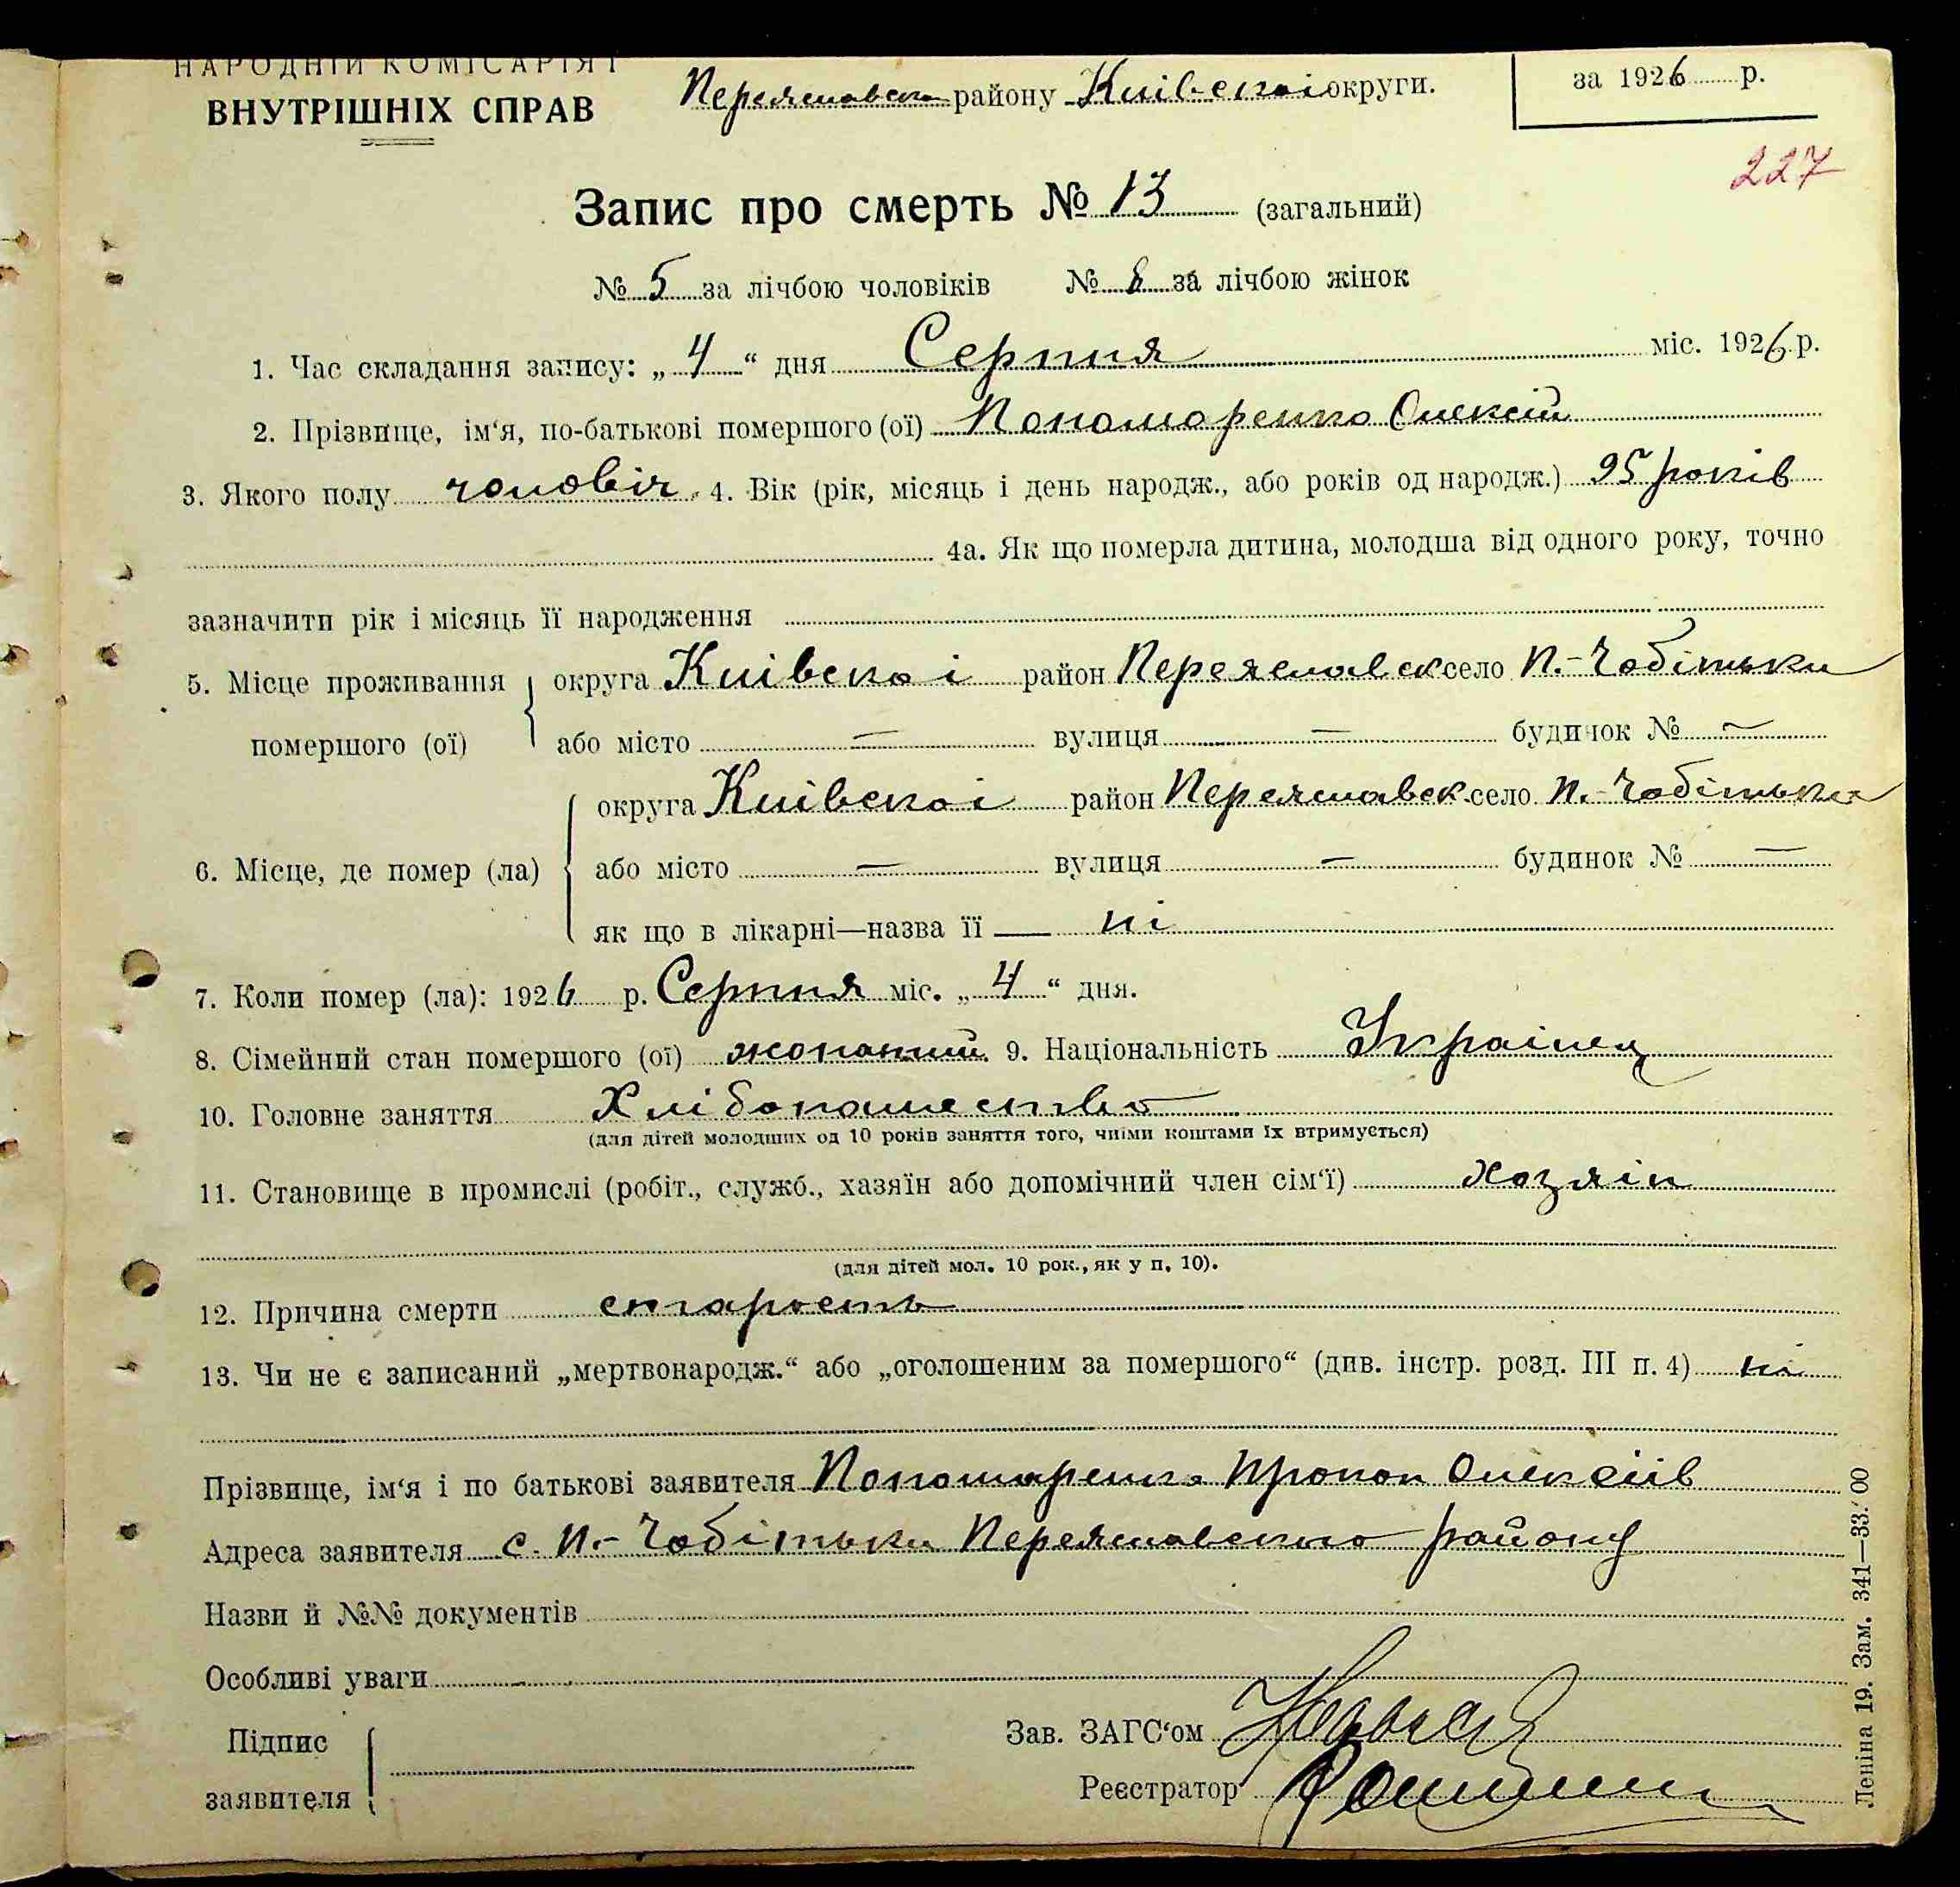 НАРОДНІЙ КОМІСАРІЯТ
ВНУТРІШНІХ СПРАВ
Переяславсько району Київскоі округи.
за 1926 р.
227
Запис про смерть № 13 (загальний)
№ 5 за лічбою чоловіків № 8 за лічбою жінок
1. Час складання запису: „ 4 “ дня Серпня міс. 1926 р.
2. Прізвище, ім‘я, по-батькові помершого (ої) Пономаренко Олексій
3. Якого полу чоловіч. 4. Вік (рік, місяць і день народж., або років од народж.) 95 років
4а. Як що померла дитина, молодша від одного року, точно
зазначити рік і місяць її народження
5. Місце проживання помершого (ої) округа Київскоі район Переяславск село П.-Чобітьки
або місто — вулиця — будинок № —
6. Місце, де помер (ла) округа Київскоі район Переяславск. село П.-Чобітьки
або місто — вулиця — будинок № —
як що в лікарні—назва її — ні
7. Коли помер (ла): 1926 р. Серпня міс. „ 4 “ дня.
8. Сімейний стан помершого (ої) жонатий. 9. Національність Українец
10. Головне заняття Хлібопашество
(для дітей молодших од 10 років заняття того, чиїми коштами їх втримується)
11. Становище в промислі (робіт., служб., хазяїн або допомічний член сім‘ї) хозяін
(для дітей мол. 10 рок., як у п. 10).
12. Причина смерти старость
13. Чи не є записаний „мертвонародж.“ або „оголошеним за помершого“ (див. інстр. розд. III п. 4) ні
Прізвище, ім‘я і по батькові заявителя Пономаренко Прокоп Олексіів
Адреса заявителя с. П.-Чобітьки Переяславсього району
Назви й №№ документів
Особливі уваги
Підпис заявителя
Зав. ЗАГС‘ом
Реєстратор
Леніна 19. Зам. 341—33.‘00